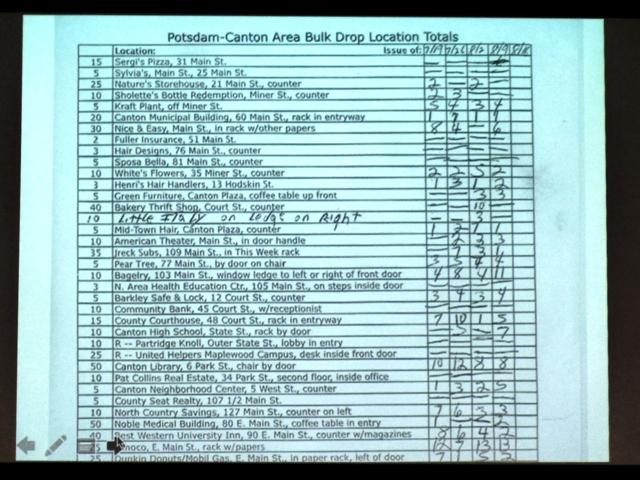 Potsdam-Canton Area Bulk Drop Location Totals
Location: Issue of: 7/19 7/26 8/2 8/9
15 Sergi's Pizza, 31 Main St.
5 Sylvia's, Main St., 25 Main St.
25 Nature's Storehouse, 21 Main St., counter 2 — 2
10 Sholette's Bottle Redemption, Miner St., counter 2 3
5 Kraft Plant, off Miner St. 5 4 3 4
20 Canton Municipal Building, 60 Main St., rack in entryway 1 7 1
30 Nice & Easy, Main St., in rack w/other papers 8 4 — 6
2 Fuller Insurance, 51 Main St.
3 Hair Designs, 76 Main St., counter
5 Sposa Bella, 81 Main St., counter
10 White's Flowers, 35 Miner St., counter 2 2 5 2
3 Henri's Hair Handlers, 13 Hodskin St. 1 3 1 2
5 Green Furniture, Canton Plaza, coffee table up front 3 3
40 Bakery Thrift Shop, Court St., counter 10
10 Little Italy on Ledge on Right 3
5 Mid-Town Hair, Canton Plaza, counter 1 2 1 1
10 American Theater, Main St., in door handle 2 3 3
35 Jreck Subs, 109 Main St., in This Week rack
5 Pear Tree, 77 Main St., by door on chair 3 5 4 4
10 Bagelry, 103 Main St., window ledge to left or right of front door 4 8 4 11
3 N. Area Health Education Ctr., 105 Main St., on steps inside door
5 Barkley Safe & Lock, 12 Court St., counter 3 4 3 4
10 Community Bank, 45 Court St., w/receptionist
15 County Courthouse, 48 Court St., rack in entryway 7 10 1 5
10 Canton High School, State St., rack by door — 5 — 7
10 R -- Partridge Knoll, Outer State St., lobby in entry
25 R -- United Helpers Maplewood Campus, desk inside front door
50 Canton Library, 6 Park St., chair by door 10 12 8 8
10 Pat Collins Real Estate, 34 Park St., second floor, inside office
5 Canton Neighborhood Center, 5 West St., counter 1 3 2 5
5 County Seat Realty, 107 1/2 Main St.
10 North Country Savings, 127 Main St., counter on left 7 6 3 3
50 Noble Medical Building, 80 E. Main St., coffee table in entry
40 Best Western University Inn, 90 E. Main St., counter w/magazines 8 6 4 2
Main St., rack w/papers 12 7 13 13
25 Dunkin Donuts/Mobil Gas, E. Main St., in paper rack, left of door 7 1 5 2